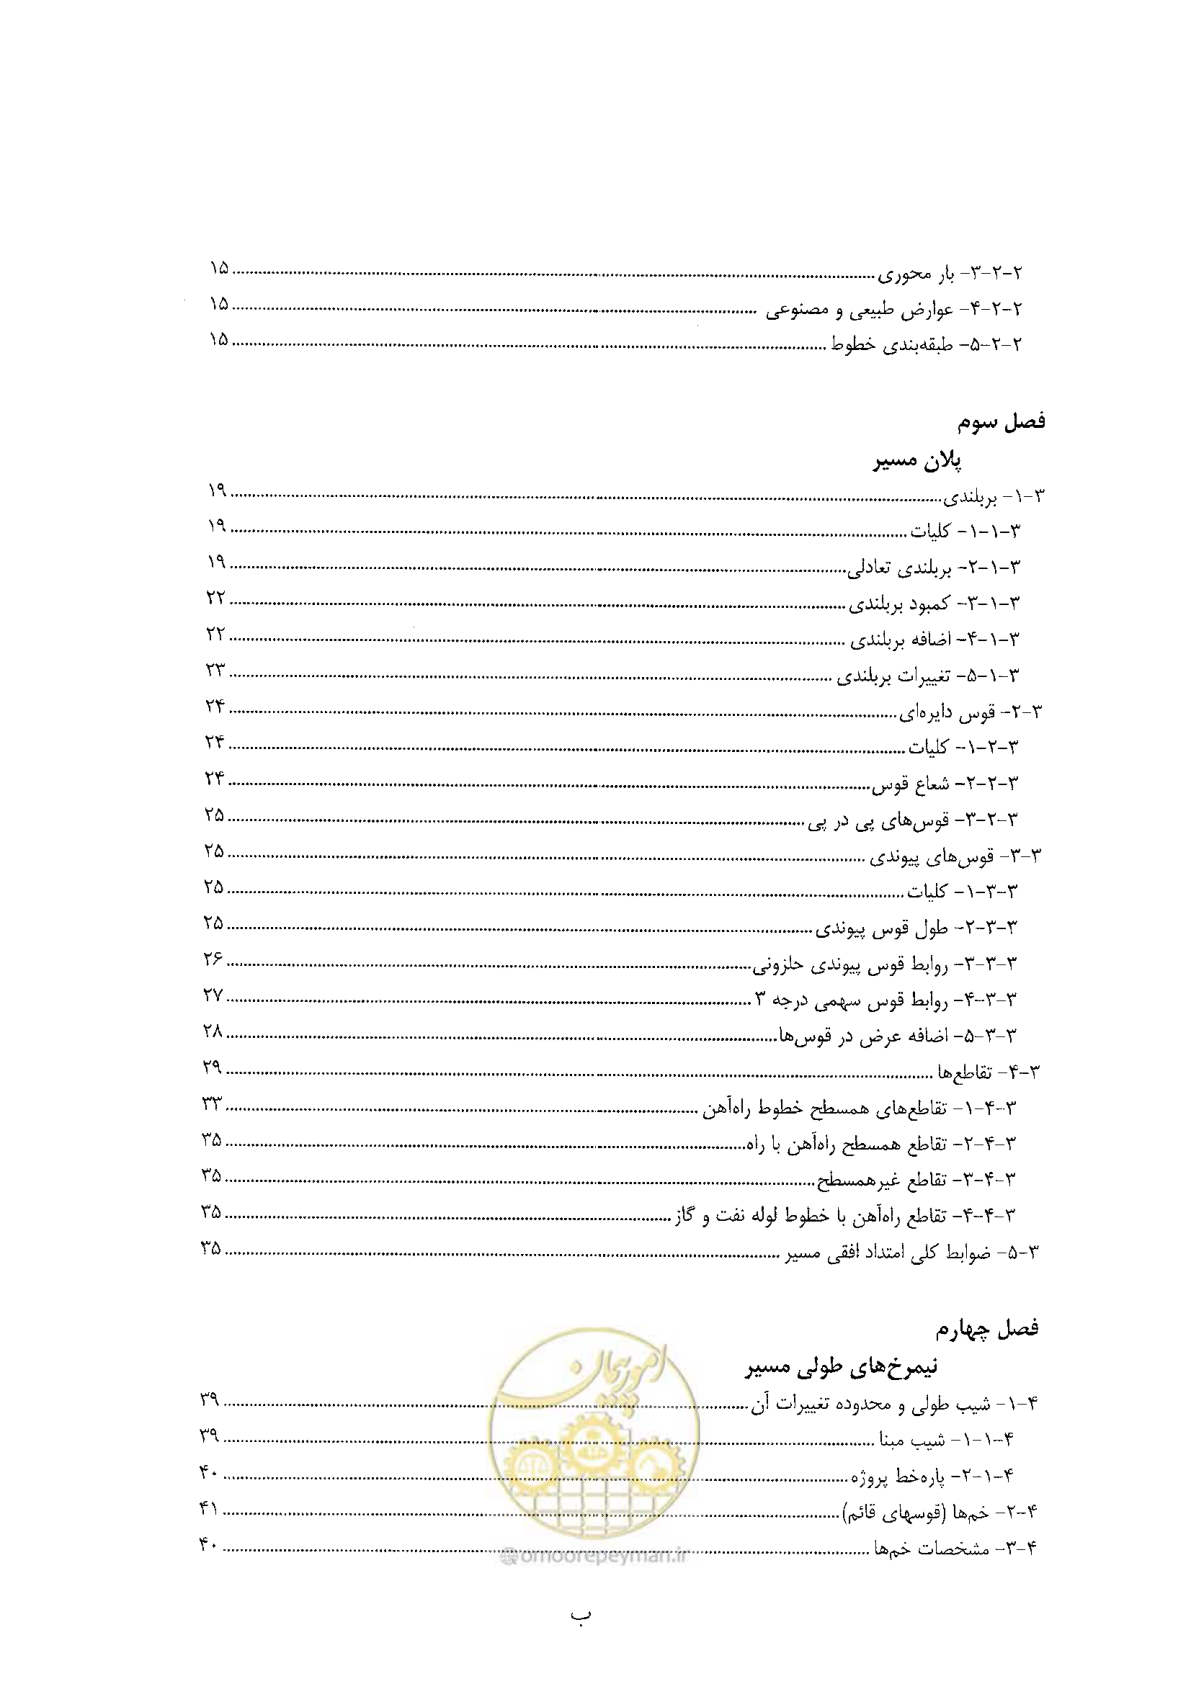 ۲-۲-۳- بار محوری ........ ۱۵
۲-۲-۴- عوارض طبیعی و مصنوعی ........ ۱۵
۲-۲-۵- طبقه‌بندی خطوط ........ ۱۵
فصل سوم
پلان مسیر
۳-۱- بربلندی ........ ۱۹
۳-۱-۱- کلیات ........ ۱۹
۳-۱-۲- بربلندی تعادلی ........ ۱۹
۳-۱-۳- کمبود بربلندی ........ ۲۲
۳-۱-۴- اضافه بربلندی ........ ۲۲
۳-۱-۵- تغییرات بربلندی ........ ۲۳
۳-۲- قوس دایره‌ای ........ ۲۴
۳-۲-۱- کلیات ........ ۲۴
۳-۲-۲- شعاع قوس ........ ۲۴
۳-۲-۳- قوس‌های پی در پی ........ ۲۵
۳-۳- قوس‌های پیوندی ........ ۲۵
۳-۳-۱- کلیات ........ ۲۵
۳-۳-۲- طول قوس پیوندی ........ ۲۵
۳-۳-۳- روابط قوس پیوندی حلزونی ........ ۲۶
۳-۳-۴- روابط قوس سهمی درجه ۳ ........ ۲۷
۳-۳-۵- اضافه عرض در قوس‌ها ........ ۲۸
۳-۴- تقاطع‌ها ........ ۲۹
۳-۴-۱- تقاطع‌های همسطح خطوط راه‌آهن ........ ۳۳
۳-۴-۲- تقاطع همسطح راه‌آهن با راه ........ ۳۵
۳-۴-۳- تقاطع غیرهمسطح ........ ۳۵
۳-۴-۴- تقاطع راه‌آهن با خطوط لوله نفت و گاز ........ ۳۵
۳-۵- ضوابط کلی امتداد افقی مسیر ........ ۳۵
فصل چهارم
نیمرخ‌های طولی مسیر
۴-۱- شیب طولی و محدوده تغییرات آن ........ ۳۹
۴-۱-۱- شیب مبنا ........ ۳۹
۴-۱-۲- پاره‌خط پروژه ........ ۴۰
۴-۲- خم‌ها (قوسهای قائم) ........ ۴۱
۴-۳- مشخصات خم‌ها ........ ۴۰
امور پیمان
@omoorepeyman.ir
ب